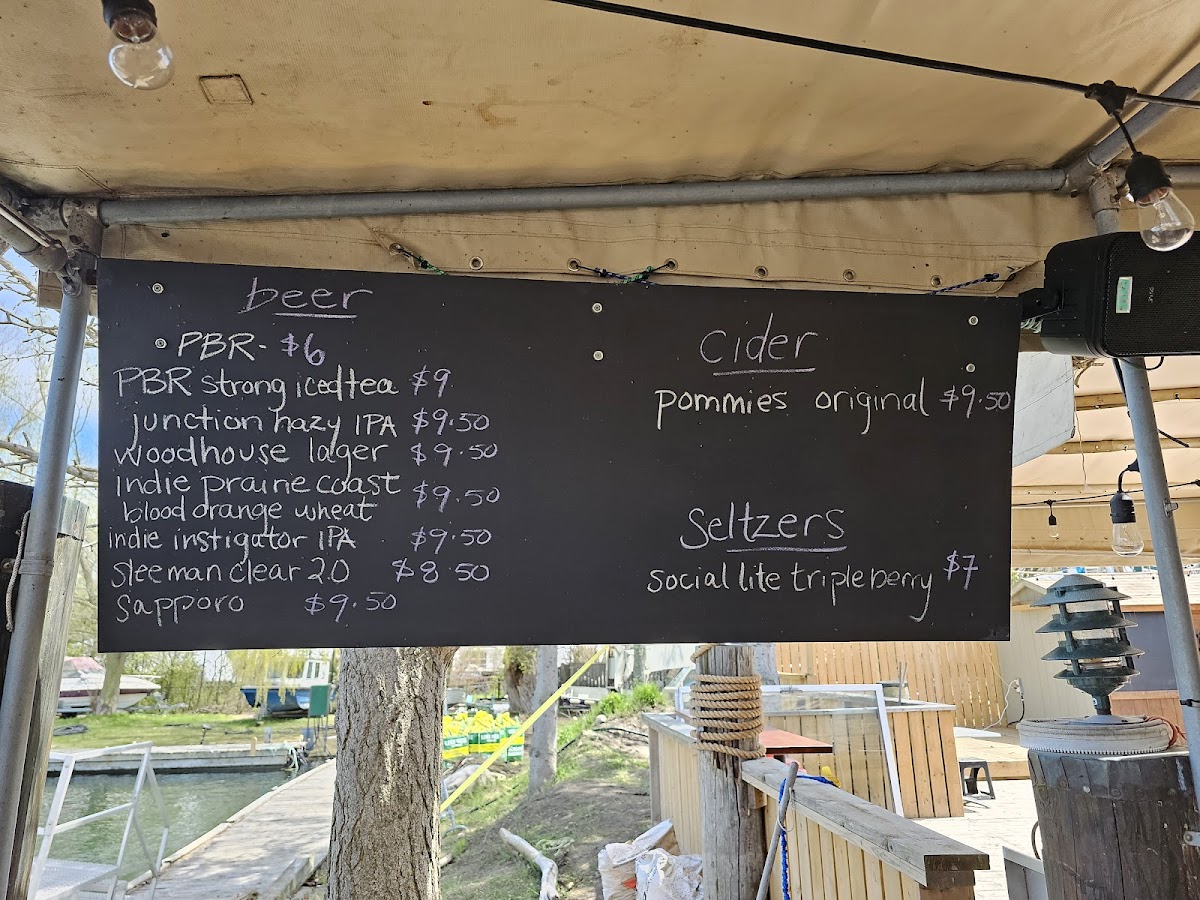 beer
PBR - $6
PBR strong iced tea $9
junction hazy IPA $9.50
woodhouse lager $9.50
indie prairie coast
blood orange wheat $9.50
indie instigator IPA $9.50
Sleeman clear 2.0 $8.50
Sapporo $9.50
Cider
pommies original $9.50
Seltzers
social lite triple berry $7